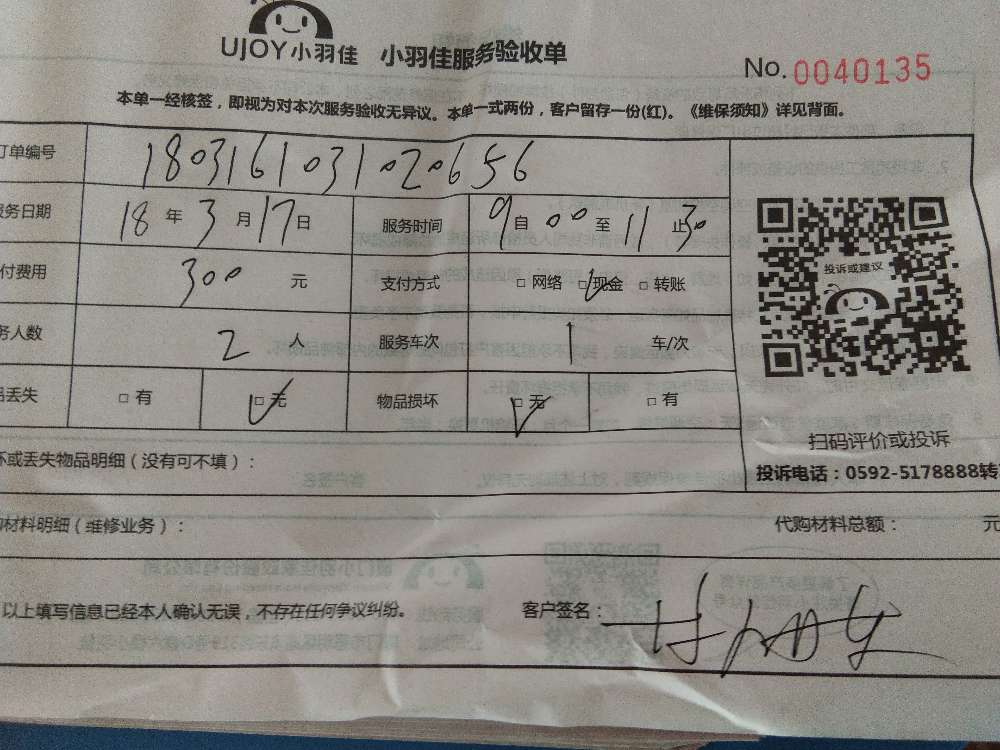 UJOY小羽佳 小羽佳服务验收单
No. 0040135
本单一经核签，即视为对本次服务验收无异议。本单一式两份，客户留存一份(红)。《维保须知》详见背面。
订单编号 180316103102０656
服务日期 18 年 3 月 17 日 服务时间 9 自 00 至 11 止 30
付费用 300 元 支付方式 □ 网络 □ 现金 □ 转账
务人数 2 人 服务车次 1 车/次
品丢失 □ 有 □ 无 物品损坏 □ 无 □ 有
投诉或建议
扫码评价或投诉
投诉电话：0592-5178888转
坏或丢失物品明细（没有可不填）：
购材料明细（维修业务）： 代购材料总额： 元
以上填写信息已经本人确认无误，不存在任何争议纠纷。 客户签名：